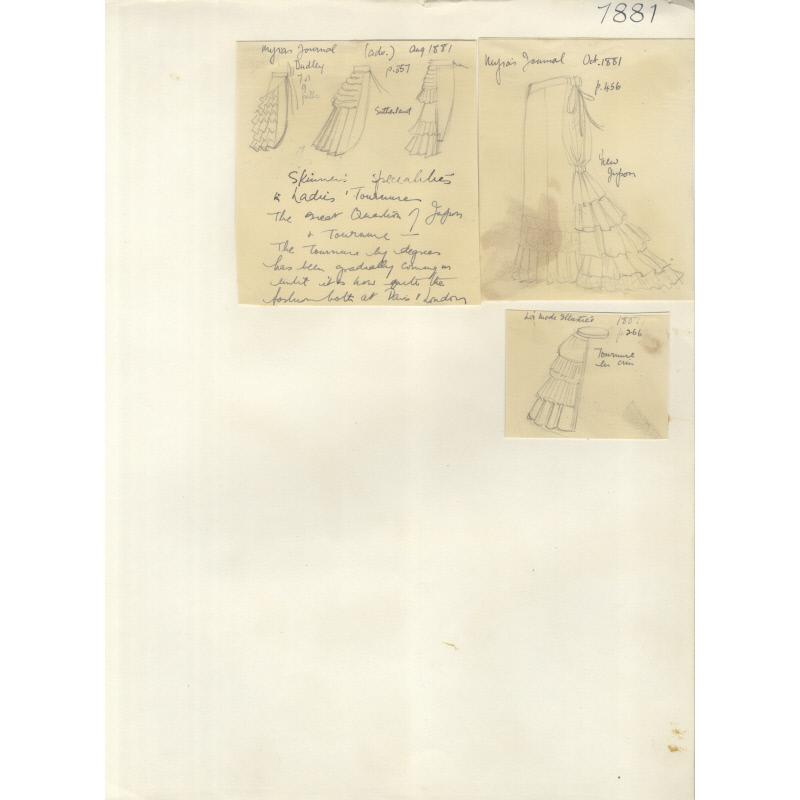 1881
Myra's Journal (adv.) Aug 1881
Dudley p.357
7/11
Sutherland
Skinner's Specialities
in Ladies' Tournures
The Great Question of Jupon
& Tournure —
The Tournure by degrees
has been gradually coming in
until it is now quite the
fashion both at Paris & London
Myra's Journal Oct. 1881
p.456
New
Jupon
La Mode Illustrée 1881
p.266
Tournure
en crin